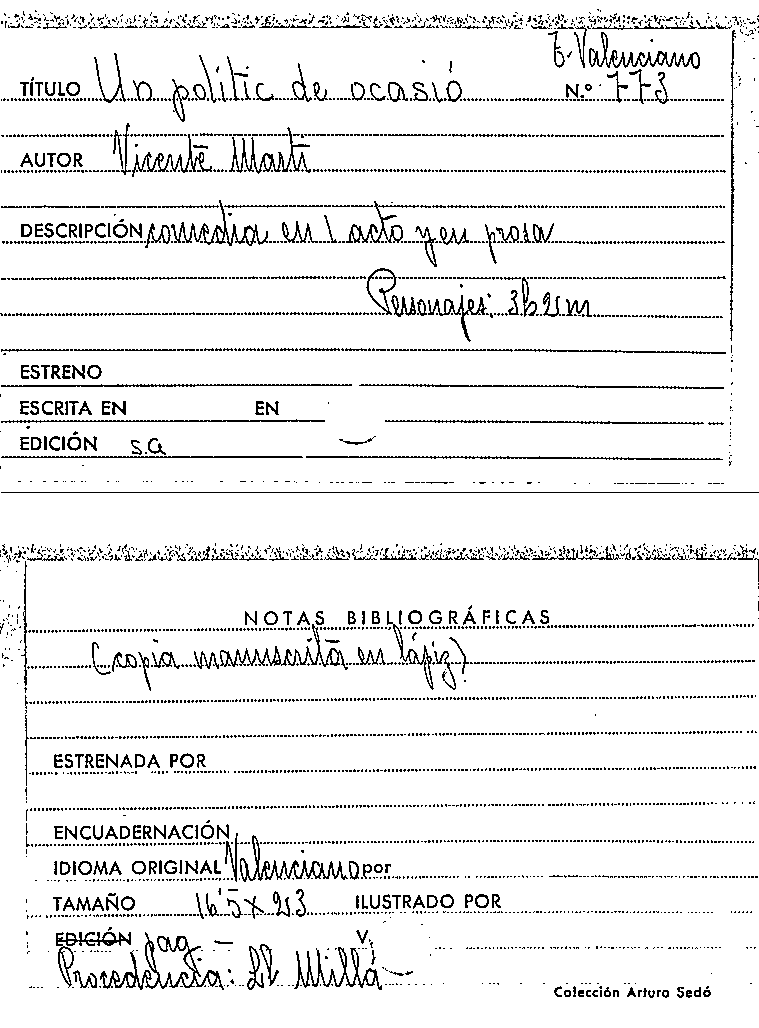 T. Valenciano
TÍTULO Un polític de ocasió N.º 773
AUTOR Vicente Marti
DESCRIPCIÓN comedia en 1 acto y en prosa
Personajes: 3h 2m
ESTRENO
ESCRITA EN EN
EDICIÓN s.a
NOTAS BIBLIOGRÁFICAS
(copia manuscrita en lápiz)
ESTRENADA POR
ENCUADERNACIÓN
IDIOMA ORIGINAL Valenciano por
TAMAÑO 16'5 x 213 ILUSTRADO POR
EDICIÓN pag — V.
Procedencia: Ll Millá
Colección Arturo Sedó